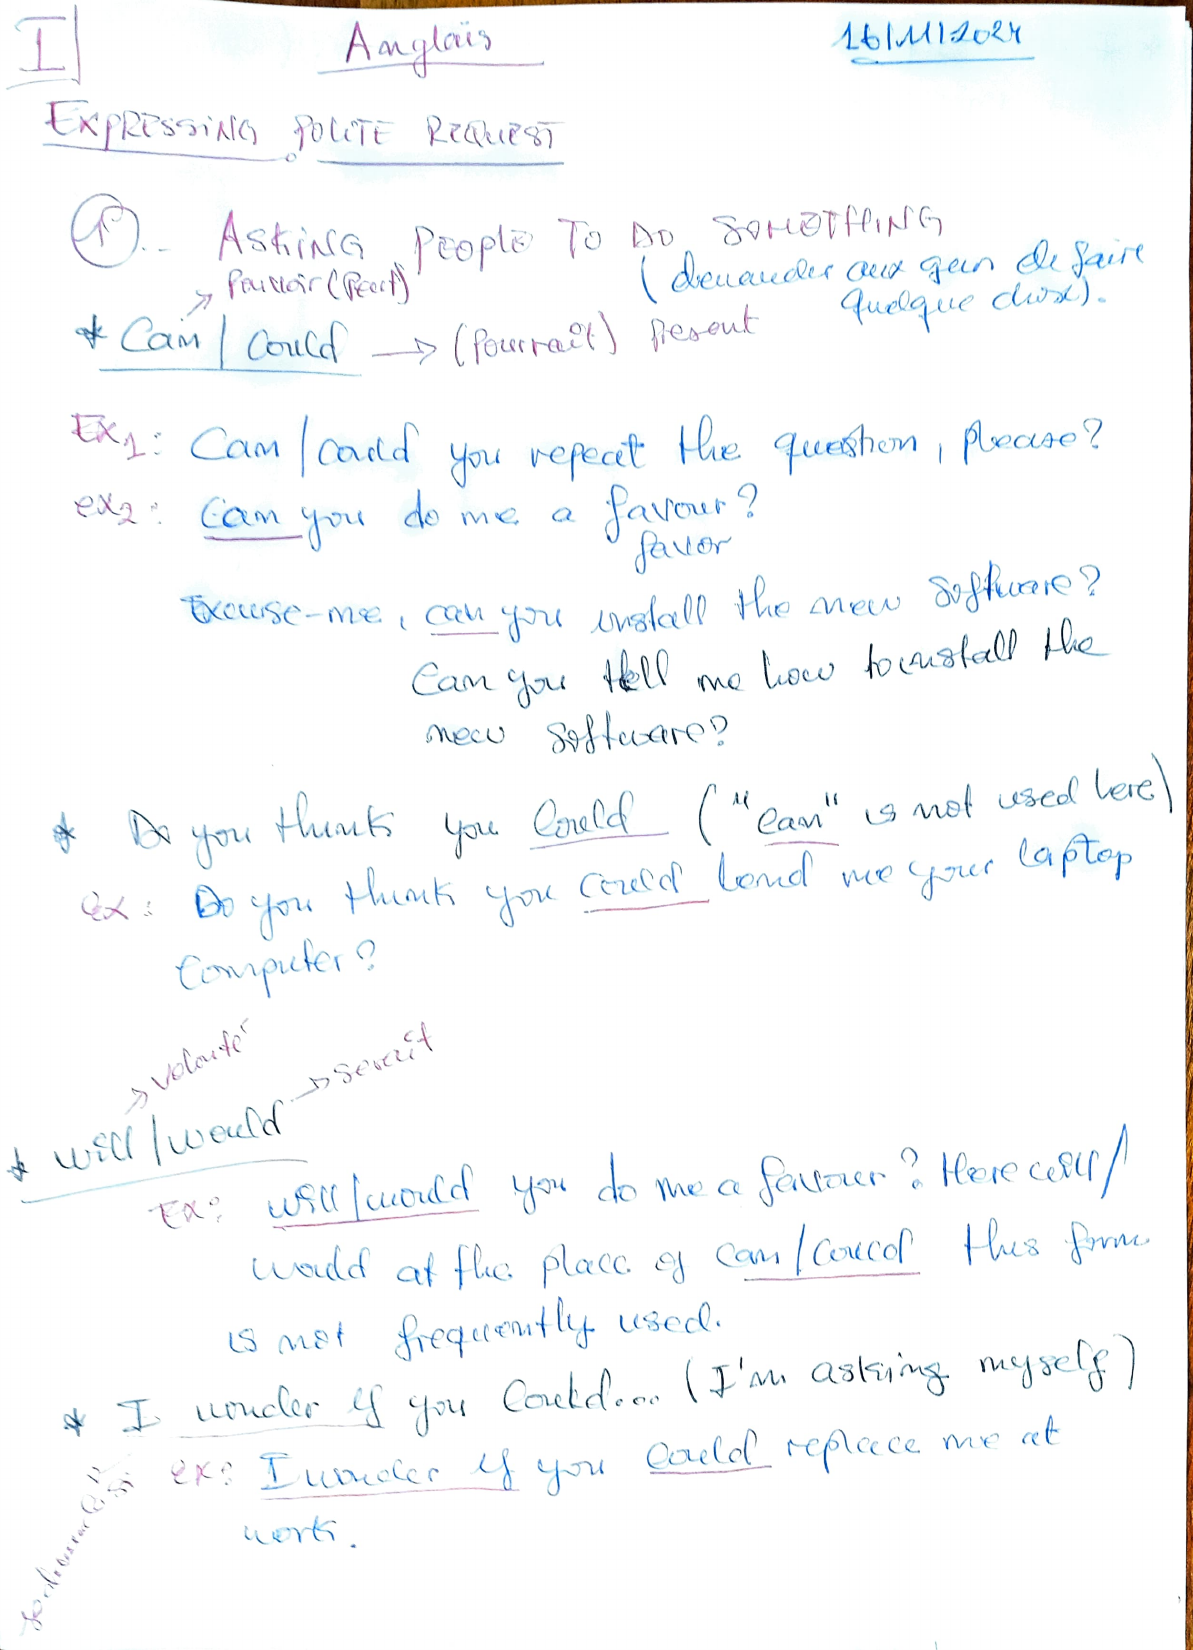 I Anglais 16/11/2024
EXPRESSING POLITE REQUEST
1.. ASKING PEOPLE TO DO SOMETHING
(demander aux gens de faire
quelque chose).
→ Pouvoir (Peut)
* Can / Could → (Pourrait) Present
Ex1: Can / could you repeat the question, please?
ex2: Can you do me a favour?
favor
Excuse-me, can you install the new software?
Can you tell me how to install the
new software?
* Do you think you Could ("can" is not used here)
ex: Do you think you could lend me your laptop
Computer?
→ Volonté → Serait
* will / would
Ex: will / would you do me a favour? Here will /
would at the place of can / could this form
is not frequently used.
* I wonder if you Could... (I'm asking myself)
ex: I wonder if you could replace me at
work.